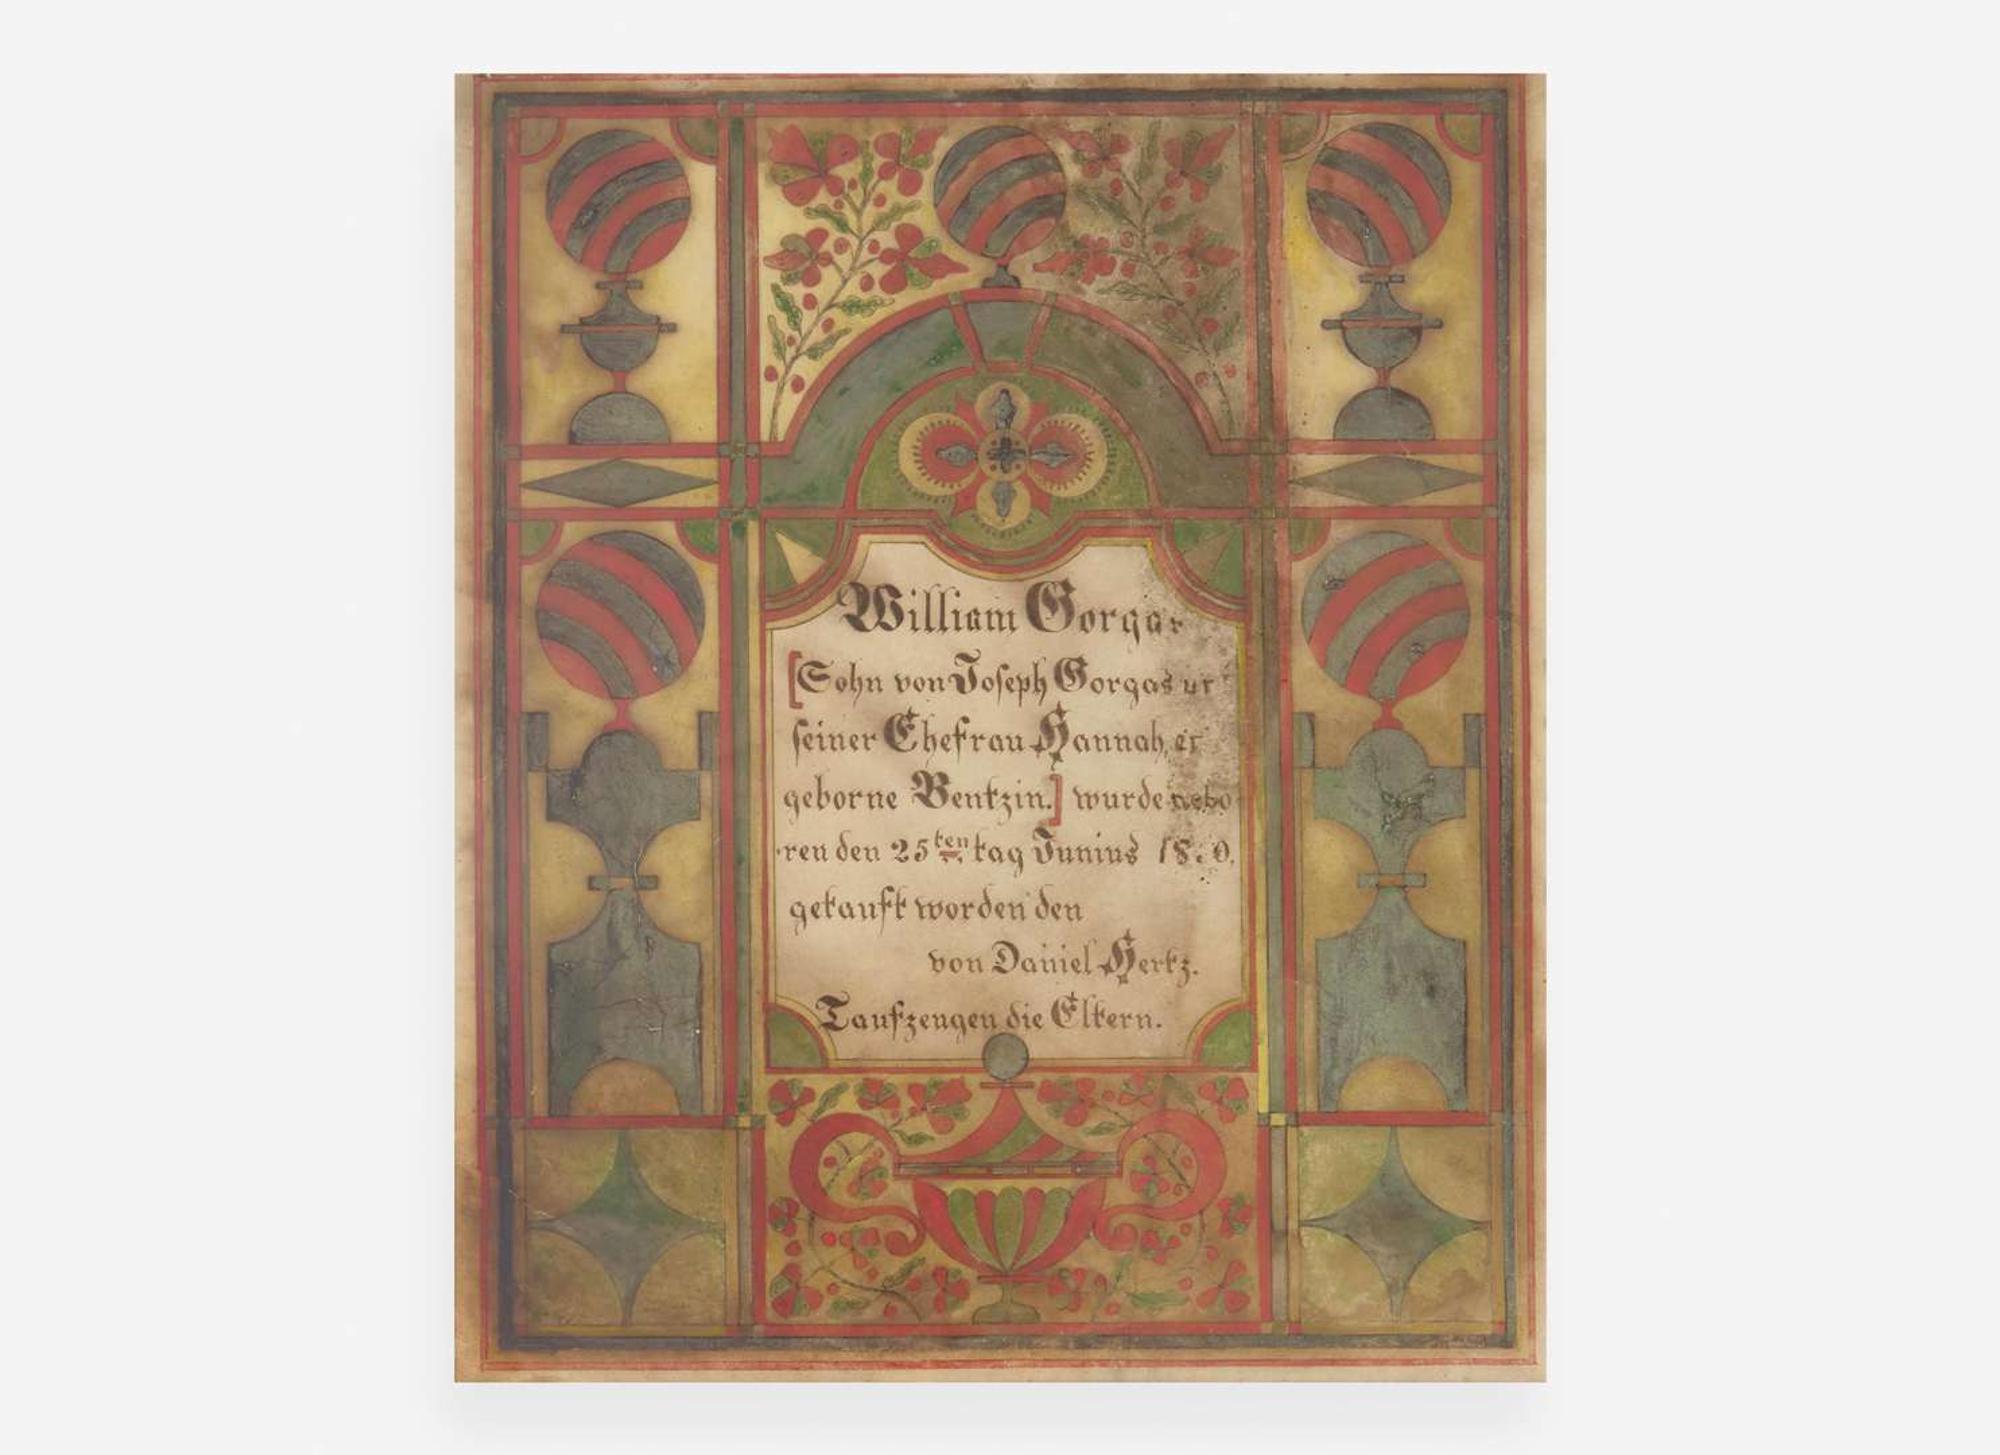 William Gorgas
[Sohn von Joſeph Gorgas
ſeiner Ehefrau Hannah,
geborne Bentzin.] wurde gebo
ren den 25ten tag Junius
getauft worden den
von Daniel Hertz.
Taufzeugen die Eltern.